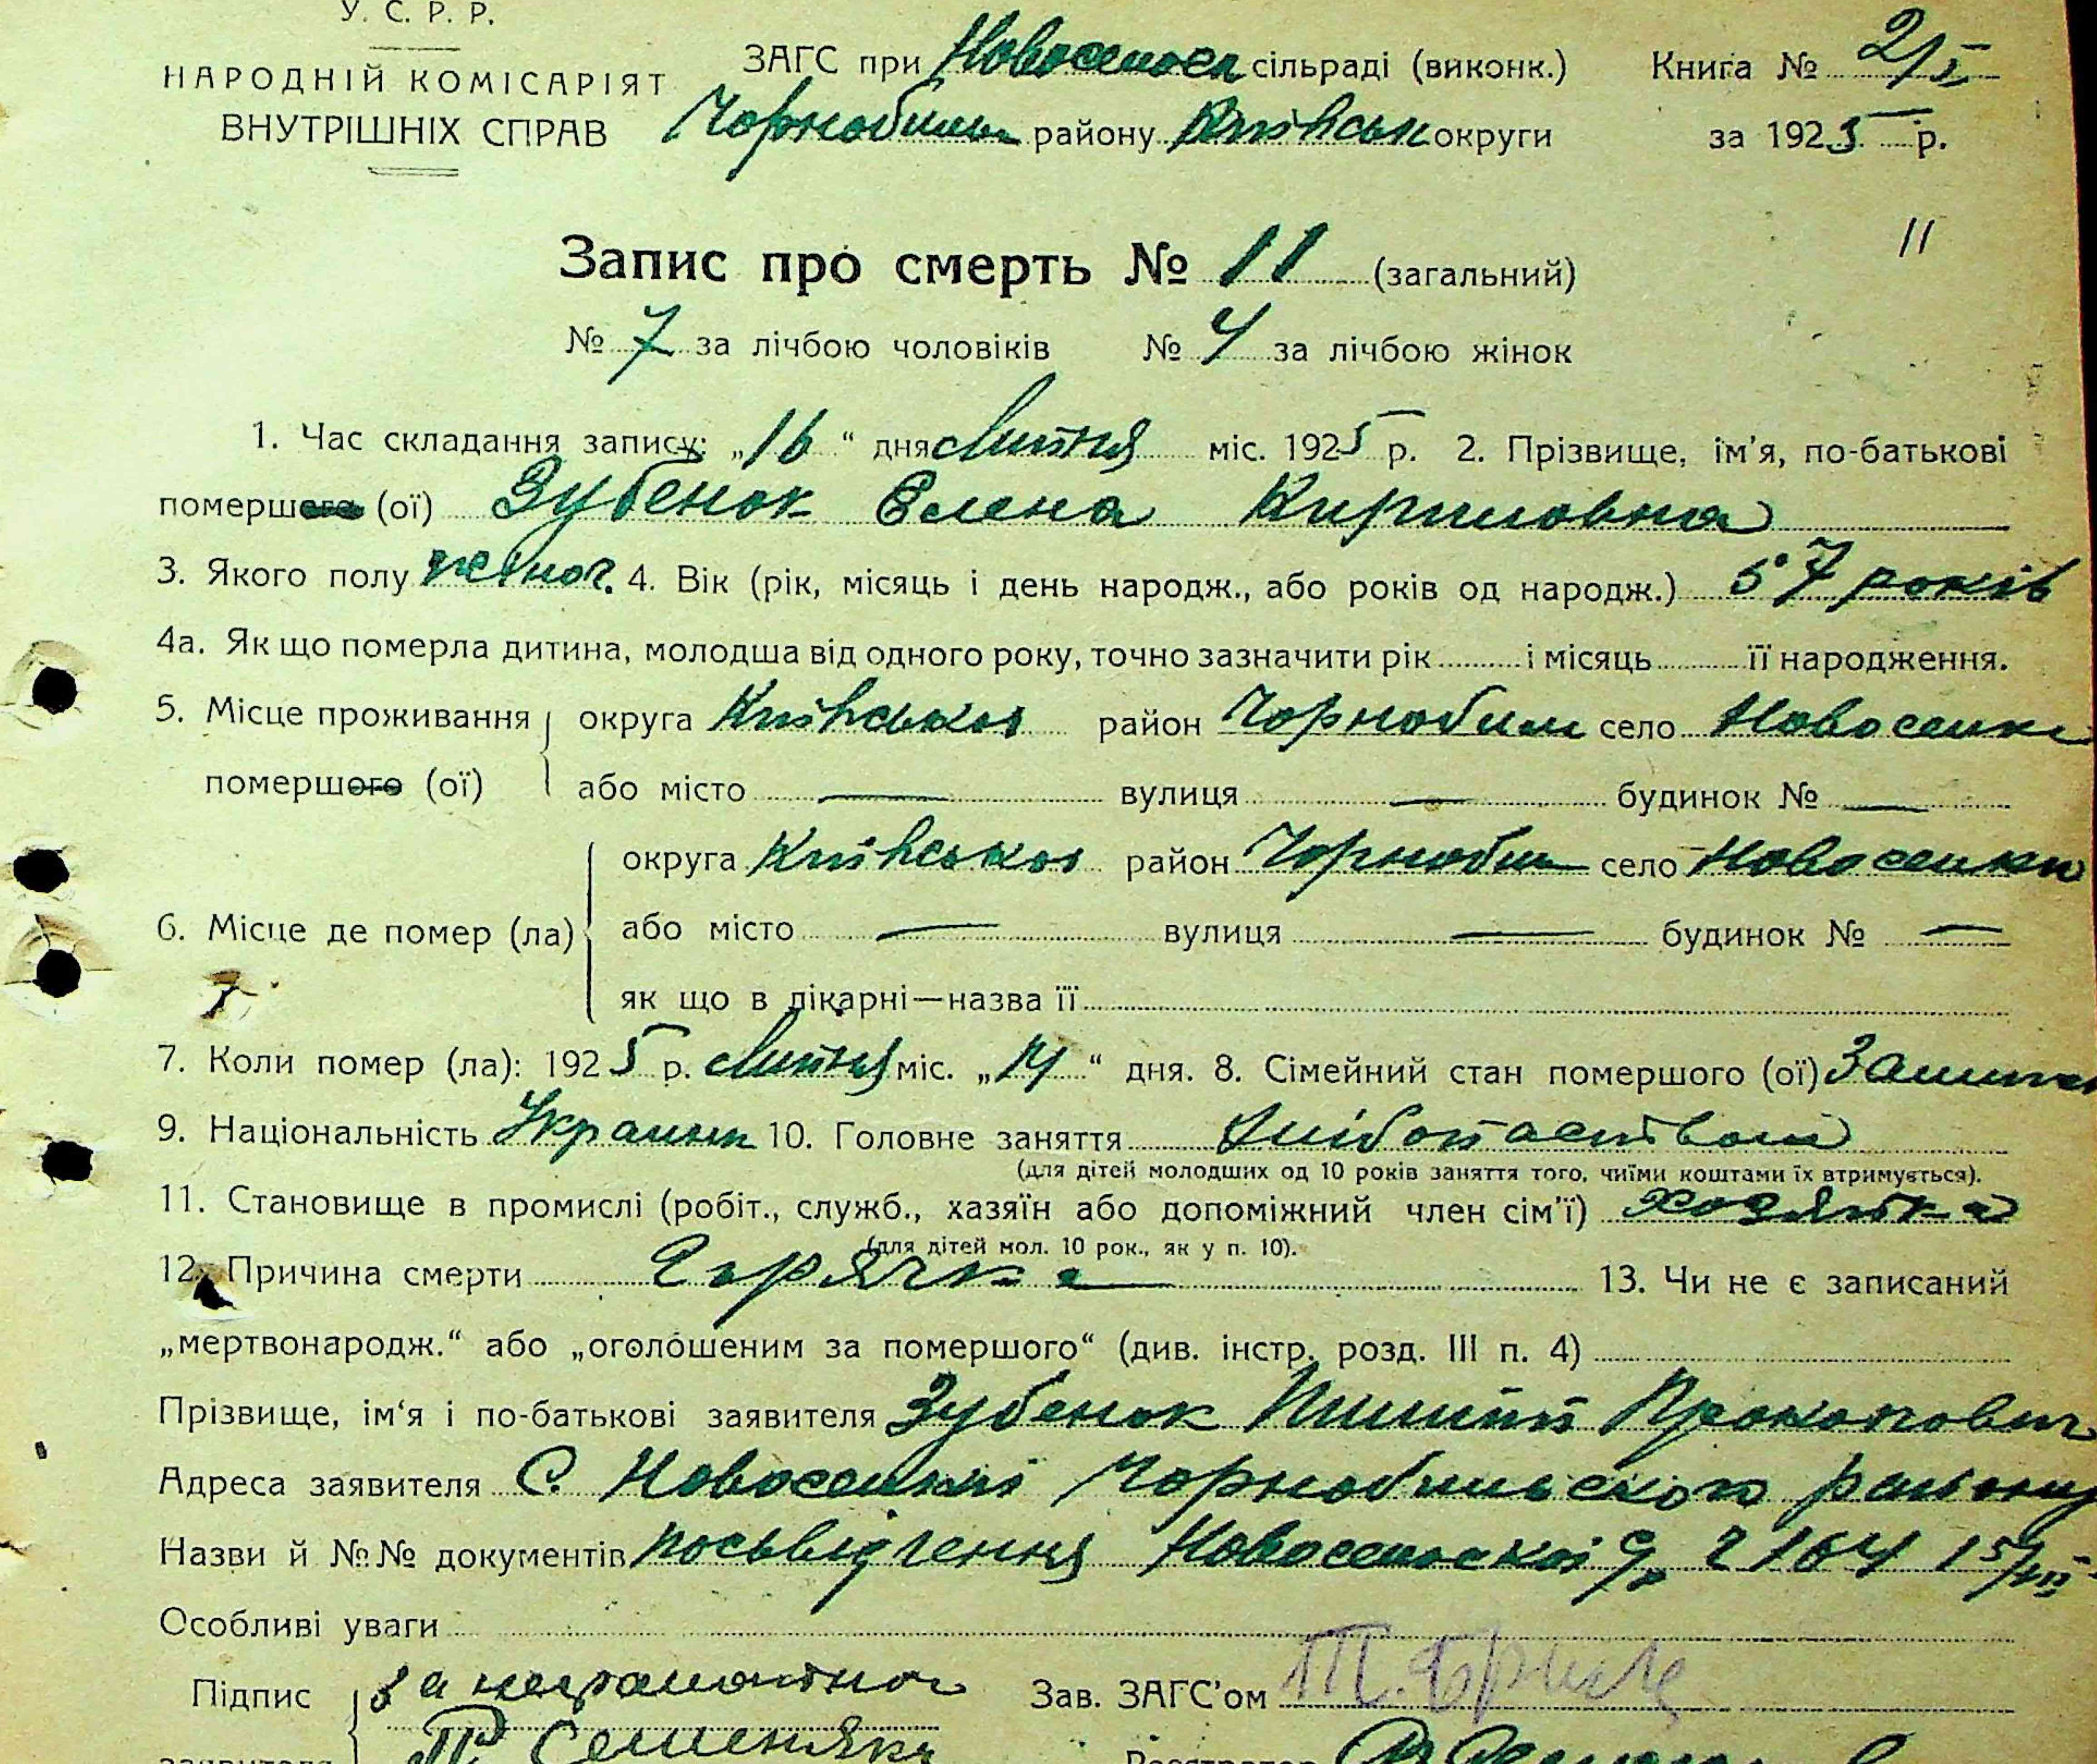 У. С. Р. Р.
НАРОДНІЙ КОМІСАРІЯТ
ВНУТРІШНІХ СПРАВ
ЗАГС при Новосельск сільраді (виконк.)
Чорнобильс району Київськ округи
Книга № 2/I
за 1925 р.
11
Запис про смерть № 11 (загальний)
№ 7 за лічбою чоловіків № 4 за лічбою жінок
1. Час складання запису: „16“ дня Липня міс. 1925 р. 2. Прізвище, ім'я, по-батькові
помершого (ої) Зубенок Елена Кириловна
3. Якого полу жіноч. 4. Вік (рік, місяць і день народж., або років од народж.) 57 років
4а. Як що померла дитина, молодша від одного року, точно зазначити рік і місяць її народження.
5. Місце проживання округа Київська район Чорнобил село Новоселки
помершого (ої) або місто — вулиця — будинок № —
округа Київська район Чорнобил село Новоселки
6. Місце де помер (ла) або місто — вулиця — будинок № —
як що в лікарні—назва її
7. Коли помер (ла): 1925 р. Липня міс. „14“ дня. 8. Сімейний стан помершого (ої)
9. Національність Украинк 10. Головне заняття Хлібопаством
(для дітей молодших од 10 років заняття того, чиїми коштами їх втримується).
11. Становище в промислі (робіт., служб., хазяїн або допоміжний член сім'ї) хозяйка
(для дітей мол. 10 рок., як у п. 10).
12. Причина смерти Горячка 13. Чи не є записаний
„мертвонародж.“ або „оголошеним за помершого“ (див. інстр. розд. III п. 4)
Прізвище, ім‘я і по-батькові заявителя Зубенок Пилип Прокопович
Адреса заявителя С. Новоселки Чорнобильского району
Назви й №№ документів посьвідчення Новосельской 2164 15/VII
Особливі уваги
Підпис за неграмотного Зав. ЗАГС'ом
заявителя Семеняка Реєстратор